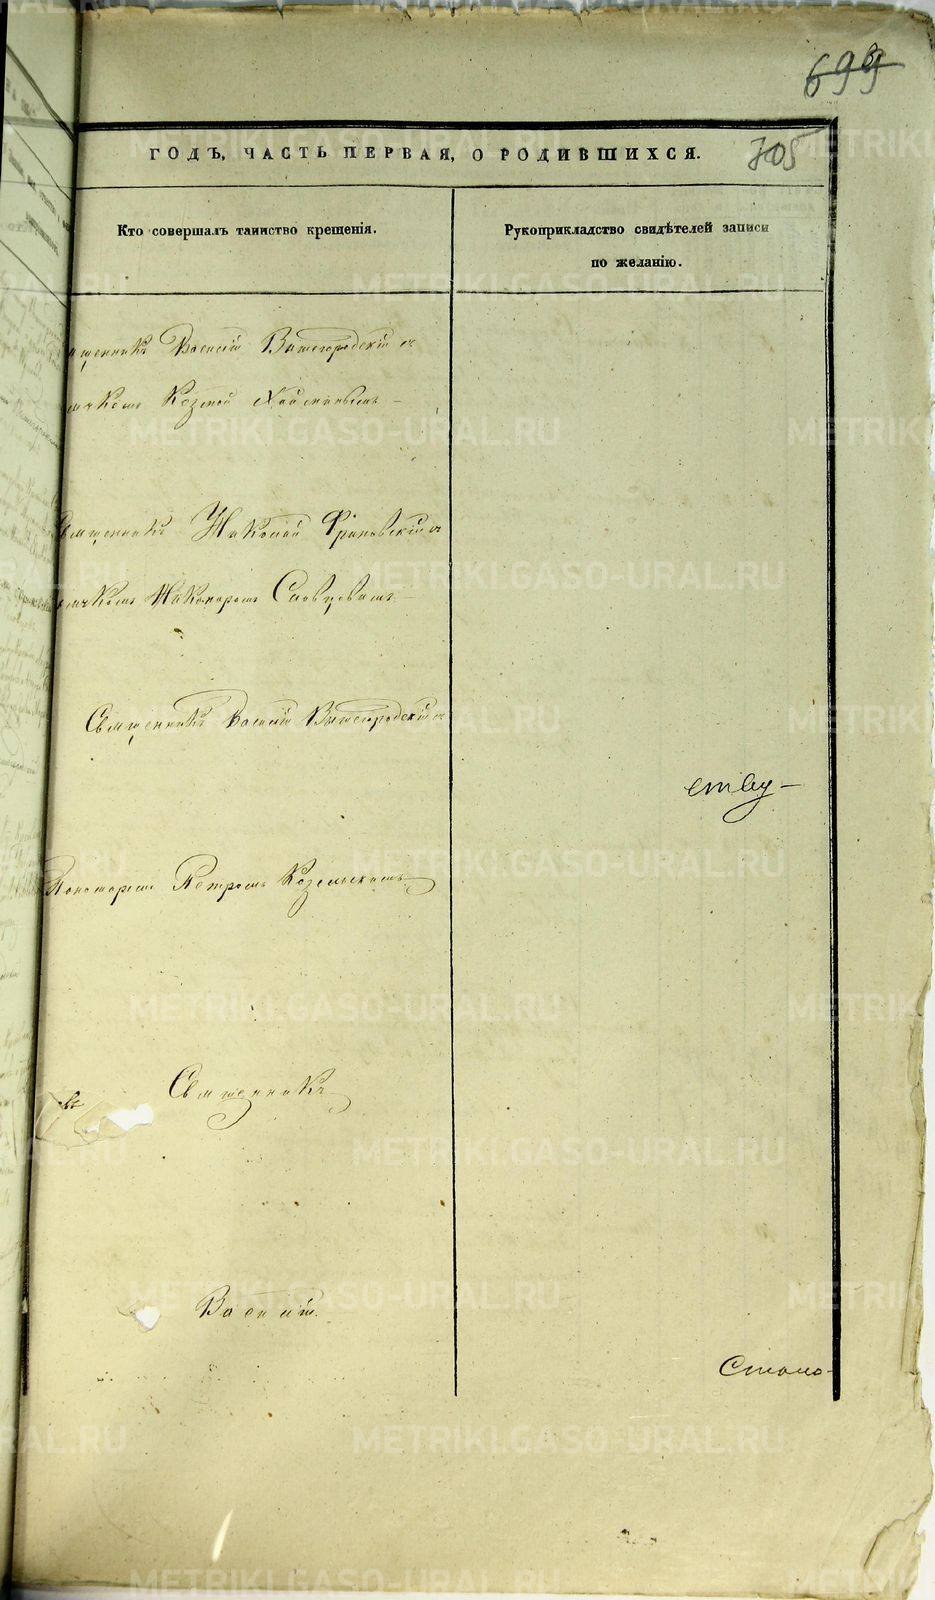 699
705
ГОДЪ, ЧАСТЬ ПЕРВАЯ, О РОДИВШИХСЯ.
Кто совершалъ таинство крещенія.
Рукоприкладство свидѣтелей записи
по желанію.
щенникъ Василій Вышегородскій съ
ячкомъ Козмой
Священникъ Николай съ
ячкомъ Никаноромъ Словцовымъ
Священникъ Василій Вышегородскій съ
ству
Пономаремъ Петромъ Козельскимъ
Священникъ
Василій
METRIKI.GASO-URAL.RU